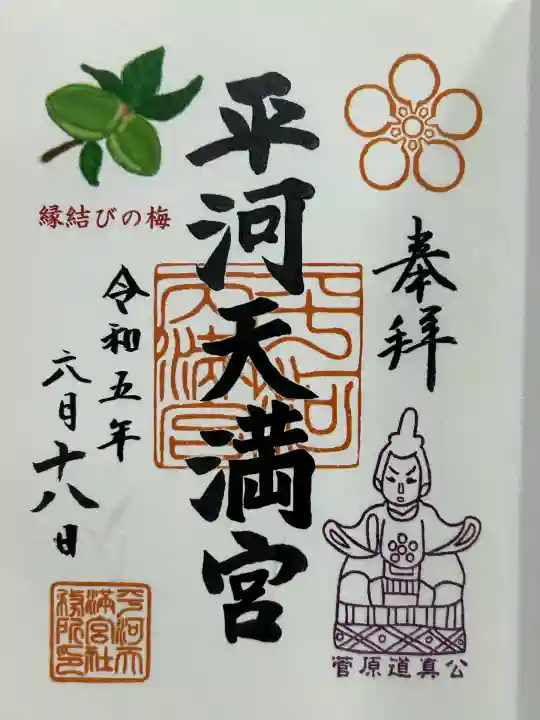 奉拝
菅原道真公
平河天満宮
平河天満宮
縁結びの梅
令和五年
六月十八日
平河天
満宮社
務所印